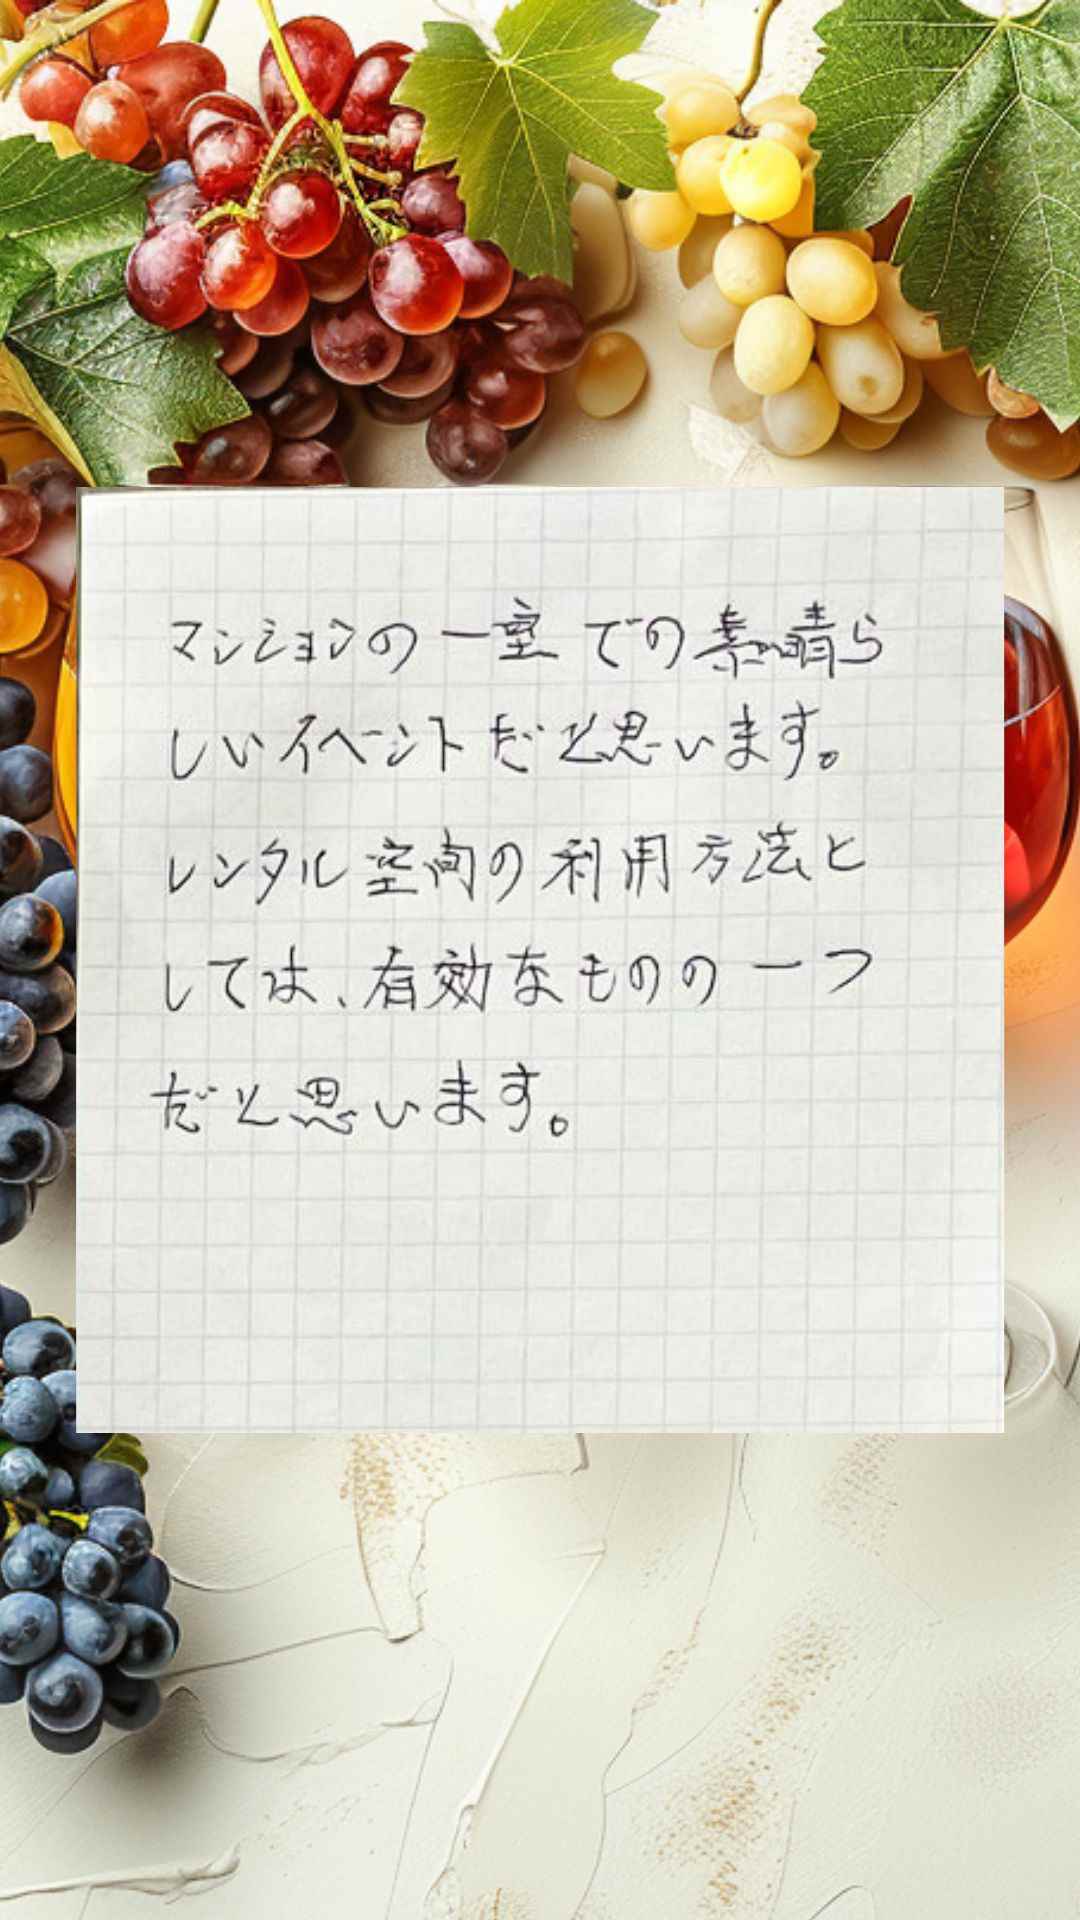 マンションの一室での素晴ら
しいイベントだと思います。
レンタル空間の利用方法と
しては、有効なものの一つ
だと思います。